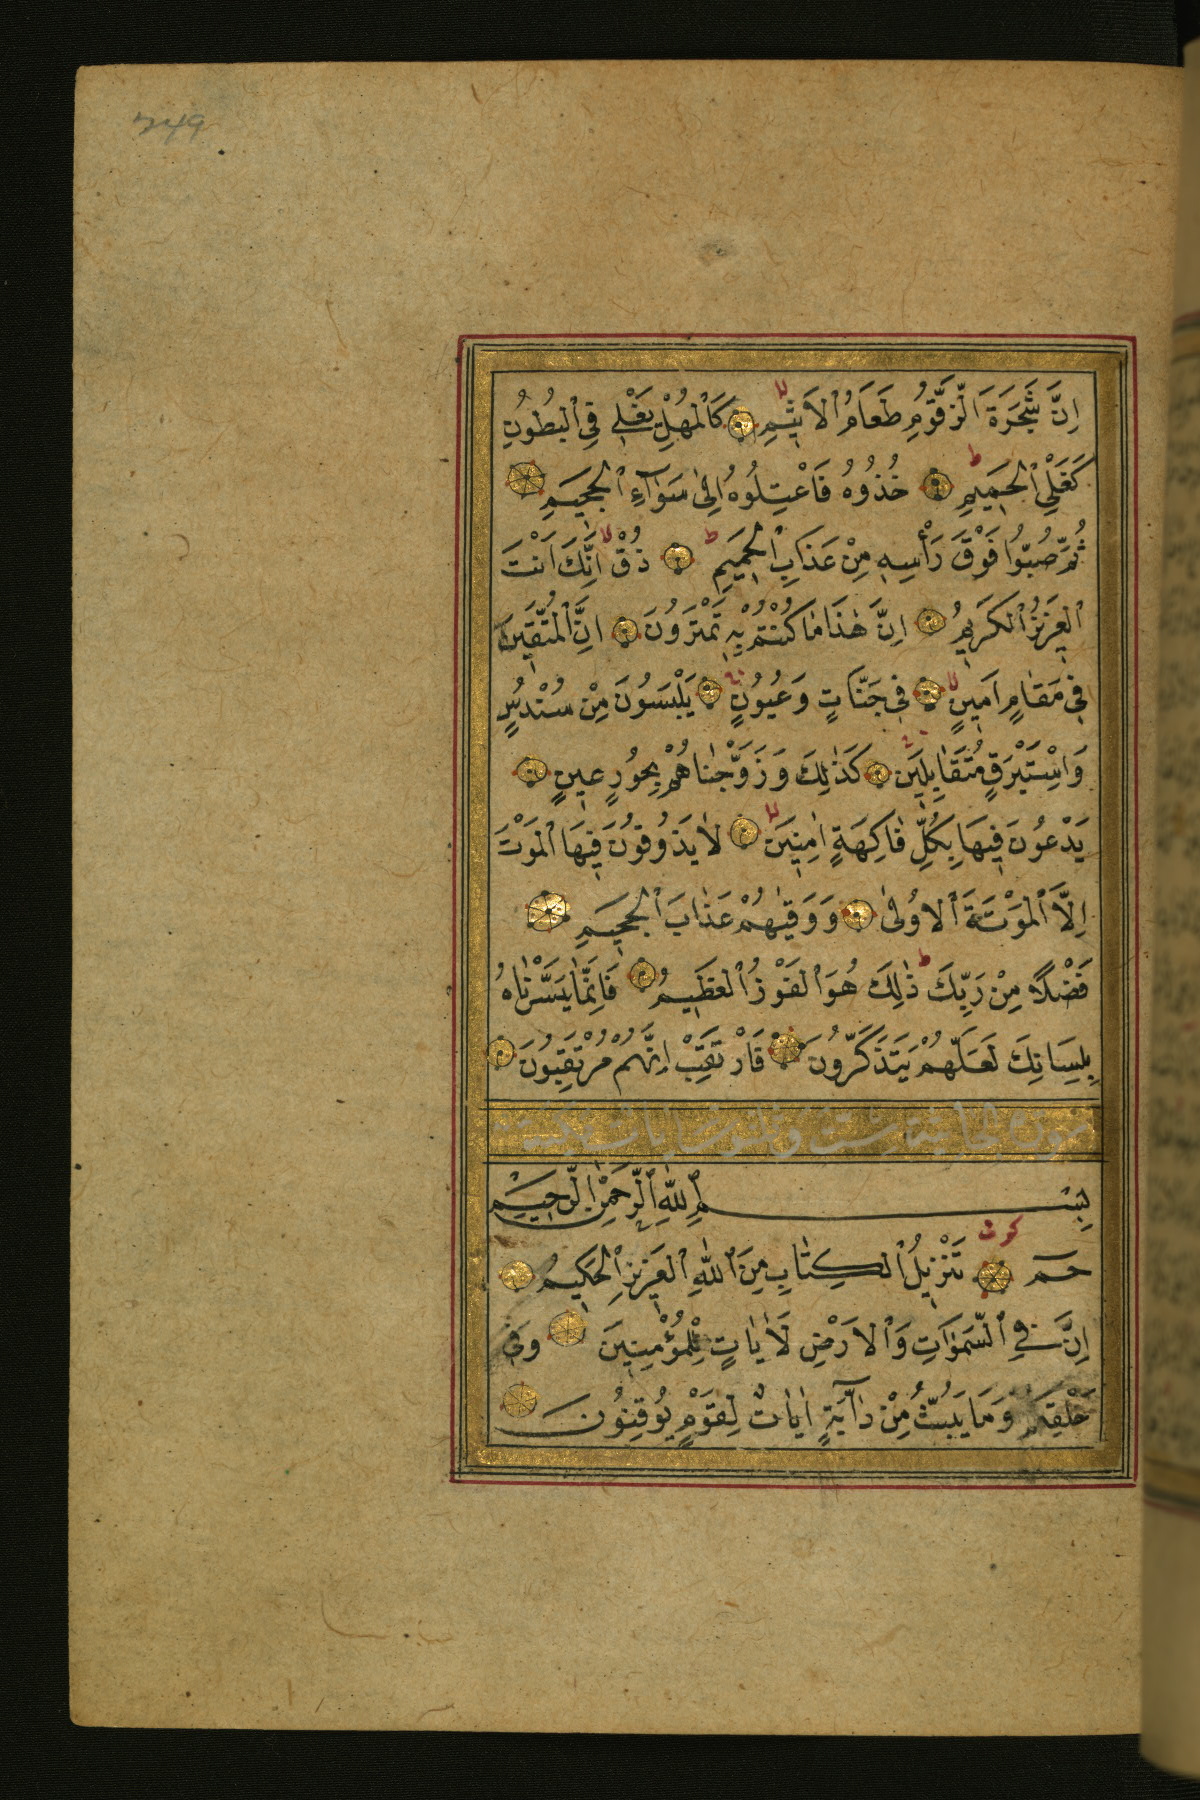 249
اِنَّ شَجَرَةَ الزَّقُّومِ طَعَامُ الْاَثِيمِ كَالْمُهْلِ يَغْلِي فِي الْبُطُونِ
كَغَلْيِ الْحَمِيمِ خُذُوهُ فَاعْتِلُوهُ اِلٰى سَوَآءِ الْجَحِيمِ
ثُمَّ صُبُّوا فَوْقَ رَأْسِهِ مِنْ عَذَابِ الْحَمِيمِ ذُقْ اِنَّكَ اَنْتَ
الْعَزِيزُ الْكَرِيمُ اِنَّ هٰذَا مَا كُنْتُمْ بِهِ تَمْتَرُونَ اِنَّ الْمُتَّقِينَ
فِي مَقَامٍ اَمِينٍ فِي جَنَّاتٍ وَعُيُونٍ يَلْبَسُونَ مِنْ سُنْدُسٍ
وَاِسْتَبْرَقٍ مُتَقَابِلِينَ كَذٰلِكَ وَزَوَّجْنَاهُمْ بِحُورٍ عِينٍ
يَدْعُونَ فِيهَا بِكُلِّ فَاكِهَةٍ اٰمِنِينَ لَا يَذُوقُونَ فِيهَا الْمَوْتَ
اِلَّا الْمَوْتَةَ الْاُولٰى وَوَقٰيهُمْ عَذَابَ الْجَحِيمِ
فَضْلًا مِنْ رَبِّكَ ذٰلِكَ هُوَ الْفَوْزُ الْعَظِيمُ فَاِنَّمَا يَسَّرْنَاهُ
بِلِسَانِكَ لَعَلَّهُمْ يَتَذَكَّرُونَ فَارْتَقِبْ اِنَّهُمْ مُرْتَقِبُونَ
سورة الجاثية ست وثلثون ايات مكية
بِسْمِ اللّٰهِ الرَّحْمٰنِ الرَّحِيمِ
حٰمٓ تَنْزِيلُ الْكِتَابِ مِنَ اللّٰهِ الْعَزِيزِ الْحَكِيمِ
اِنَّ فِي السَّمٰوَاتِ وَالْاَرْضِ لَاٰيَاتٍ لِلْمُؤْمِنِينَ وَفِي
خَلْقِكُمْ وَمَا يَبُثُّ مِنْ دَآبَّةٍ اٰيَاتٌ لِقَوْمٍ يُوقِنُونَ